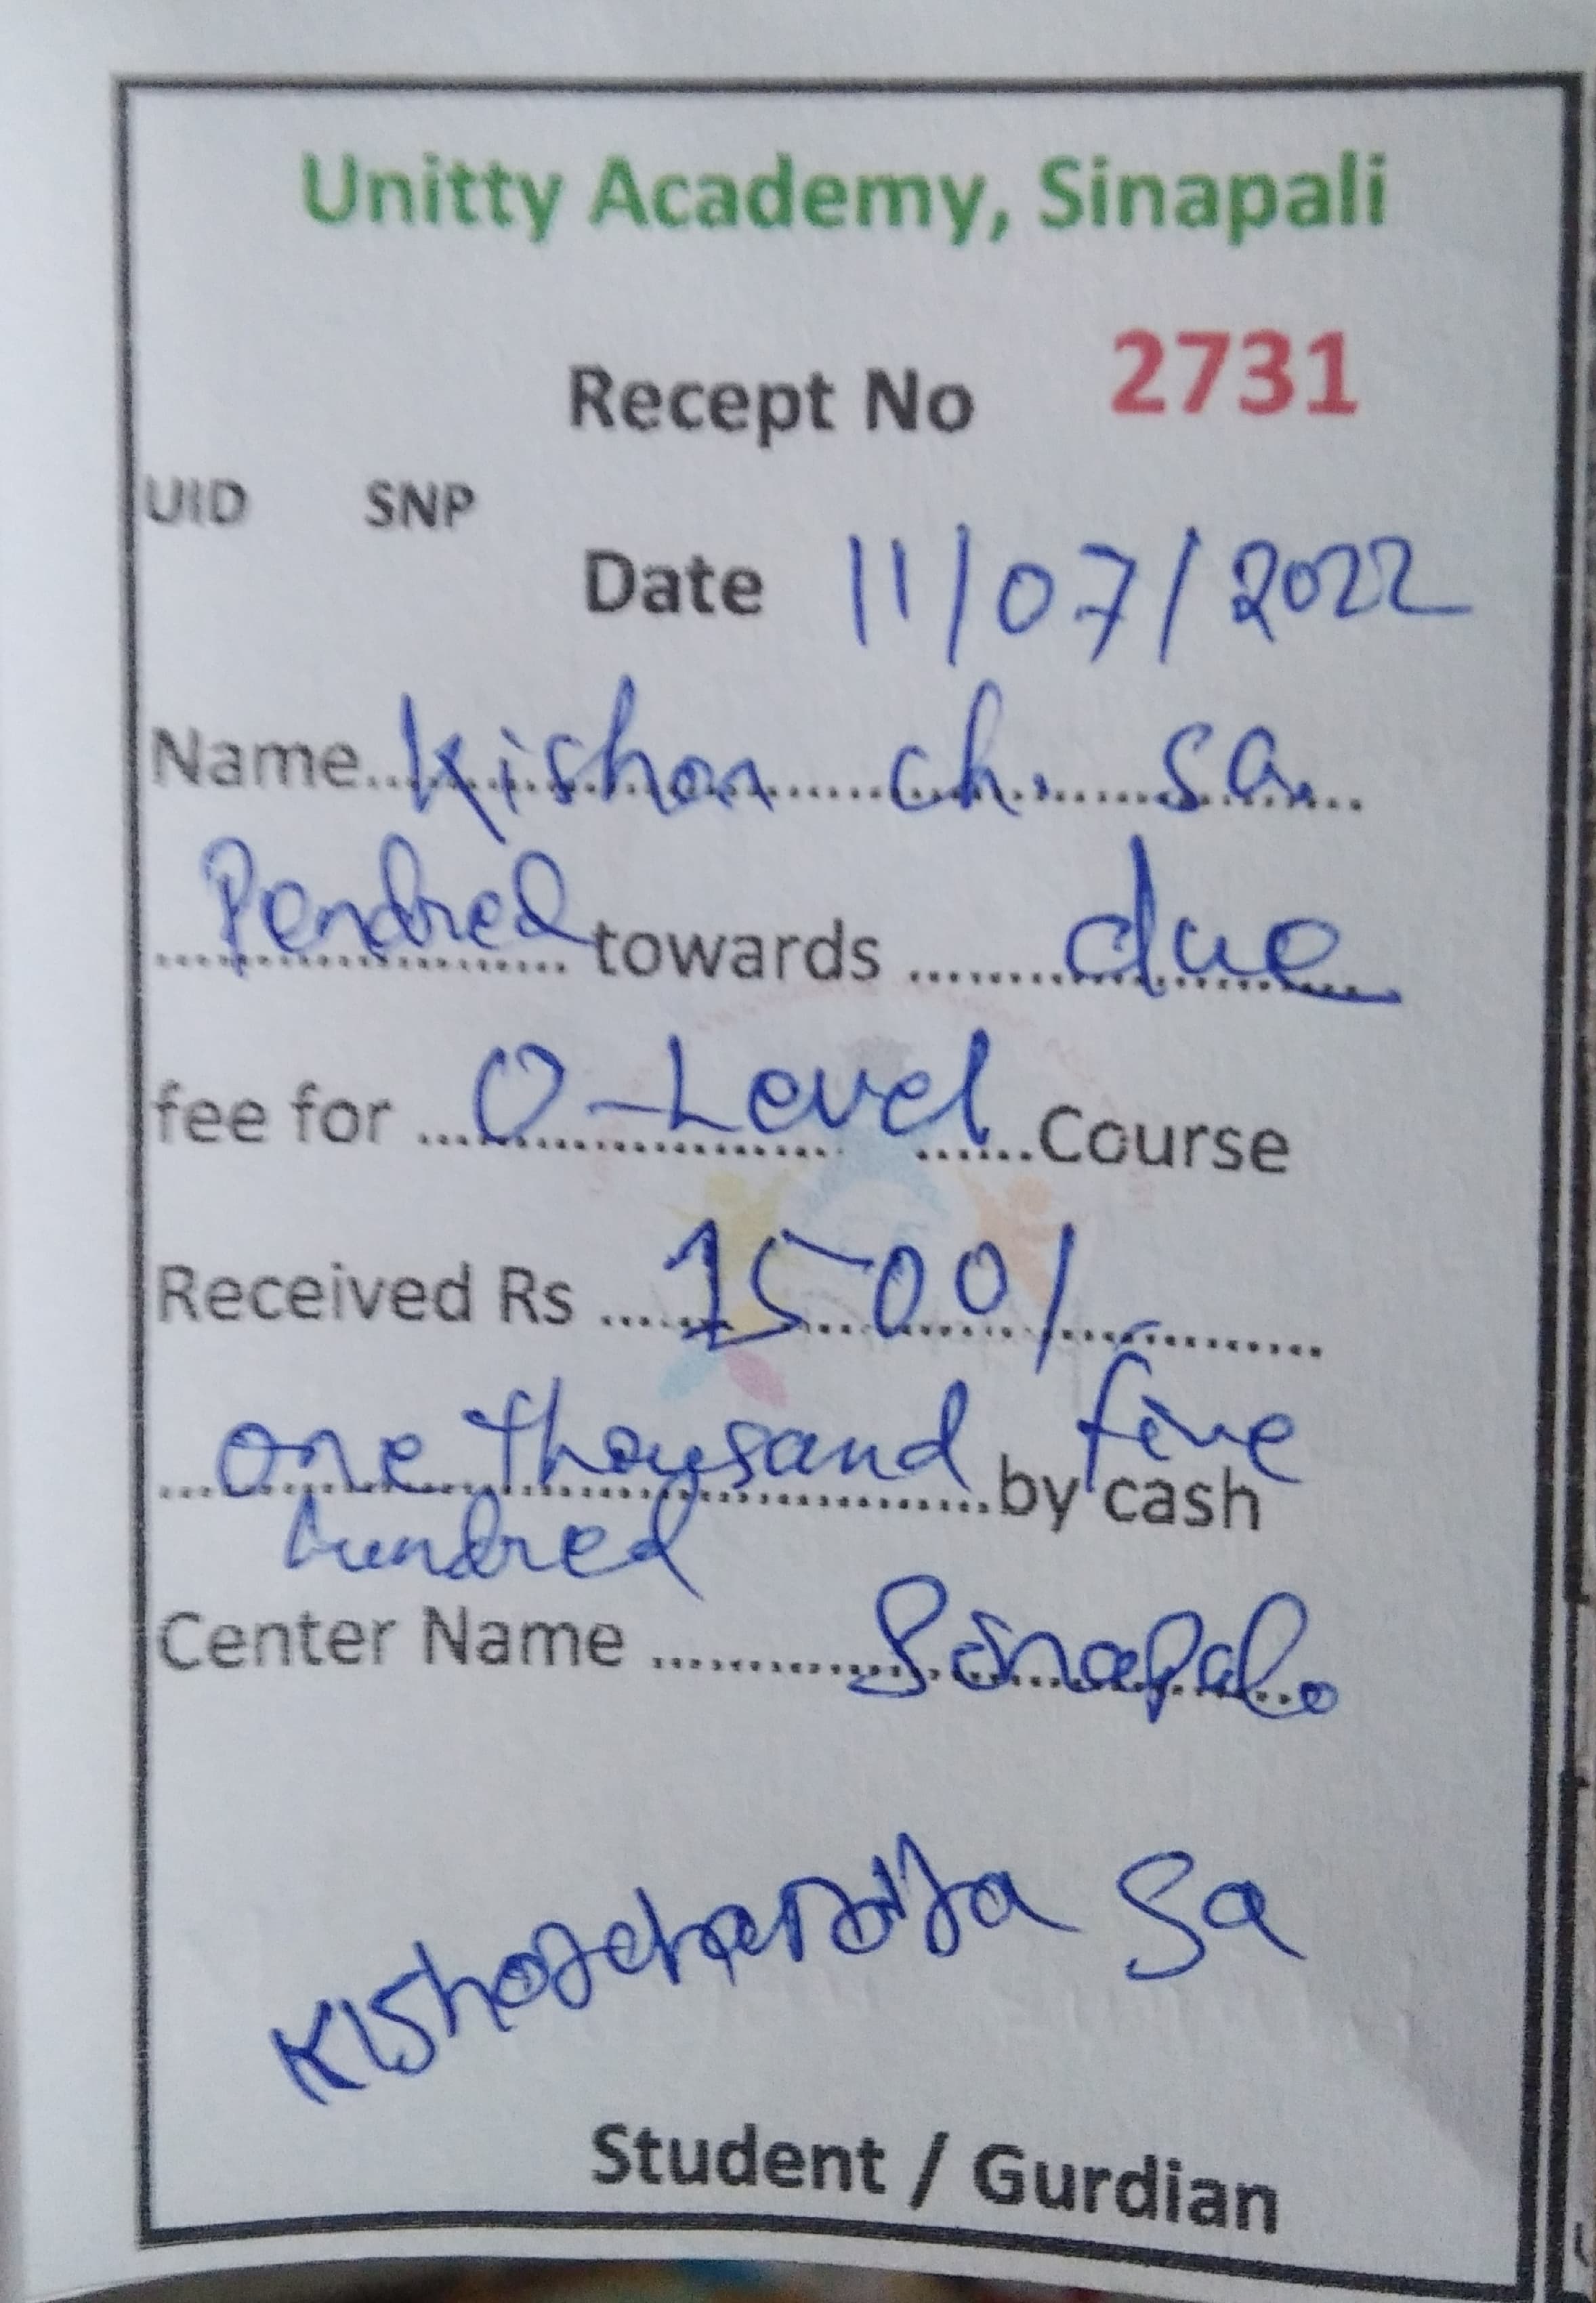 Unitty Academy, Sinapali
Recept No 2731
UID SNP
Date 11/07/2022
Name Kishor ch. Sa.
towards due
fee for O-Level Course
Received Rs 1500/-
one thousand five
by cash
hundred
Center Name Sinapali
Kishorchandra Sa
Student / Gurdian